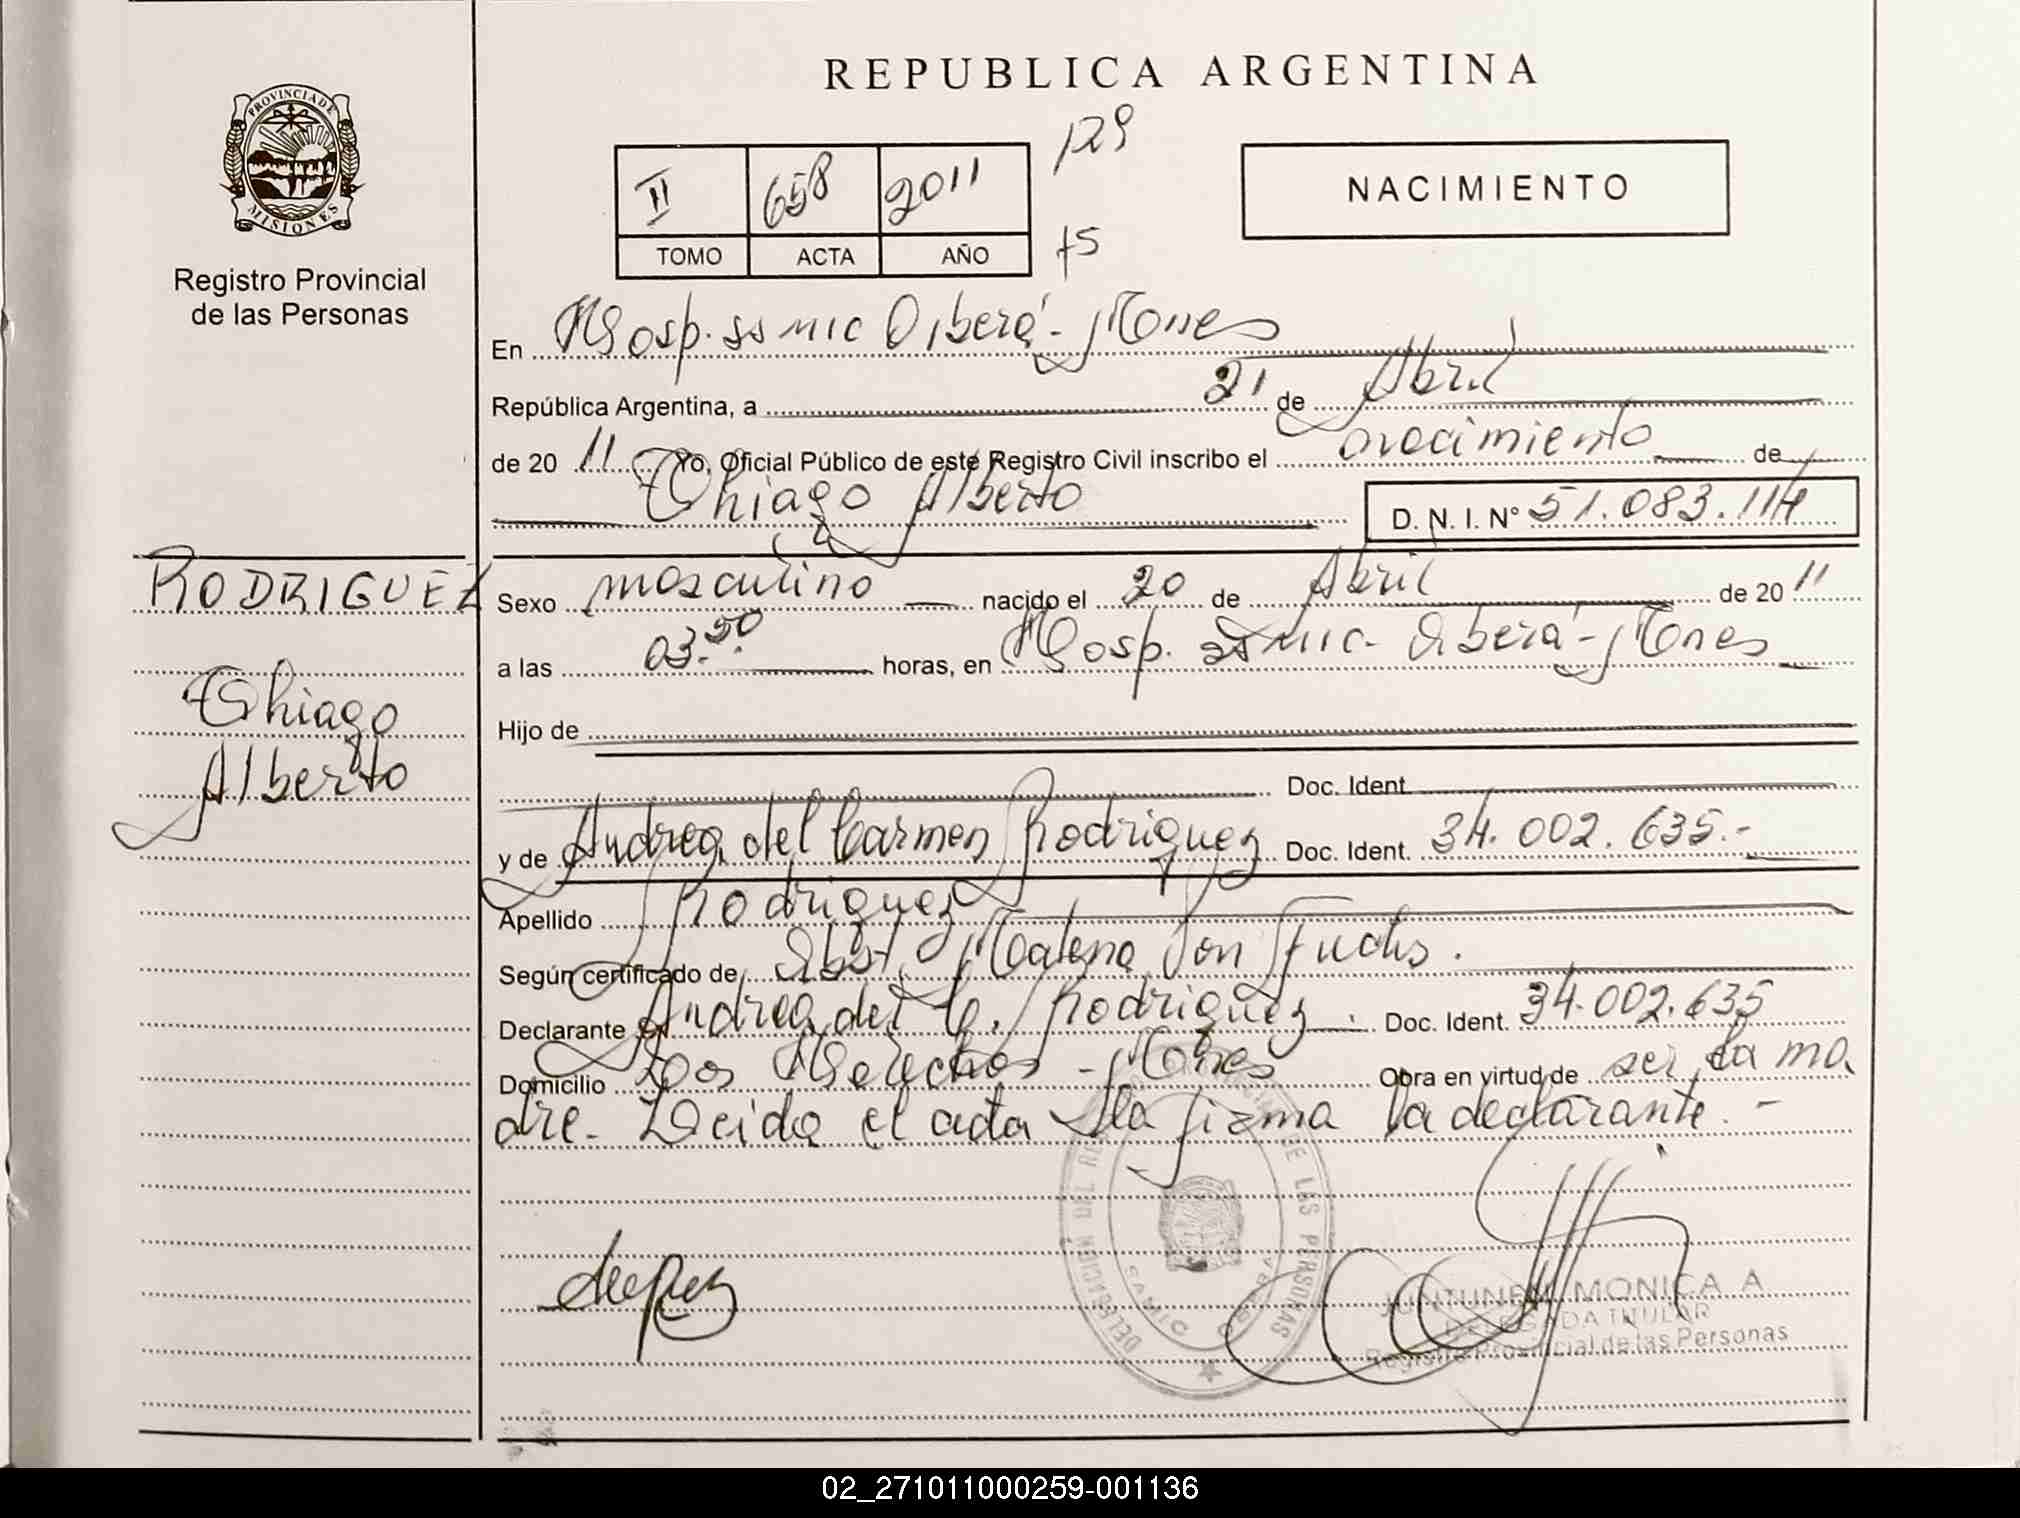 REPUBLICA ARGENTINA
PROVINCIA DE
MISIONES
Registro Provincial
de las Personas
II 658 2011 129
TOMO ACTA AÑO
NACIMIENTO
En Hosp. ss mic Oberá - Mones
República Argentina, a 21 de Abril
de 20 11 Yo, Oficial Público de este Registro Civil inscribo el nacimiento de
Thiago Alberto D. N. I. N° 51.083.114
RODRIGUEZ
Thiago
Alberto
Sexo masculino nacido el 20 de Abril de 20 11
a las 03.50 horas, en Hosp. ss mic. Oberá - Mones
Hijo de
Doc. Ident
y de Andrea del Carmen Rodriguez Doc. Ident. 34.002.635.-
Apellido Rodriguez
Según certificado de Obst. Malena Von Fuchs.
Declarante Andrea del C. Rodriguez. Doc. Ident. 34.002.635
Domicilio Los Helechos - Mones Obra en virtud de ser la ma
dre. Leida el acta la firma la declarante. -
DELEGACION DEL DE LAS PERSONAS
SAMIC OBERA
MONICA A
DELEGADA TITULAR
Registro Provincial de las Personas
02_271011000259-001136